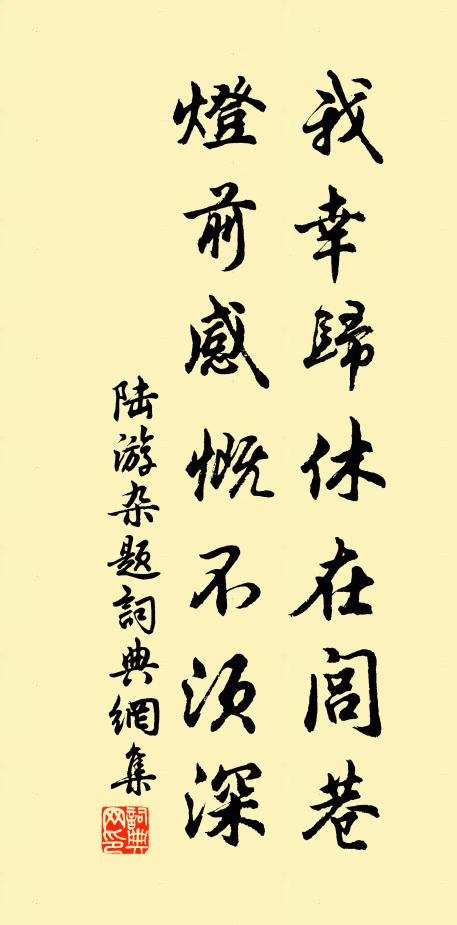 我幸歸休在閭巷
燈前感慨不须深
陆游杂题詞典網集
詞典网印